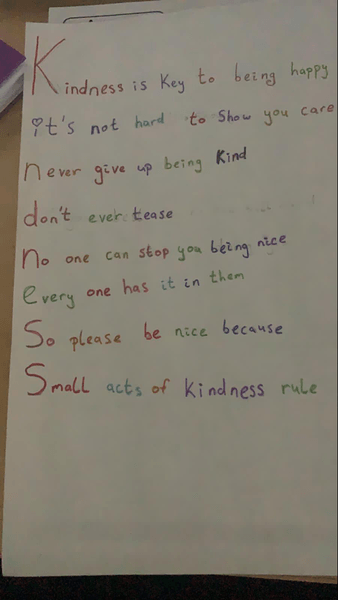 Kindness is Key to being happy
it's not hard to Show you care
never give up being Kind
don't ever tease
no one can stop you being nice
every one has it in them
So please be nice because
Small acts of kindness rule